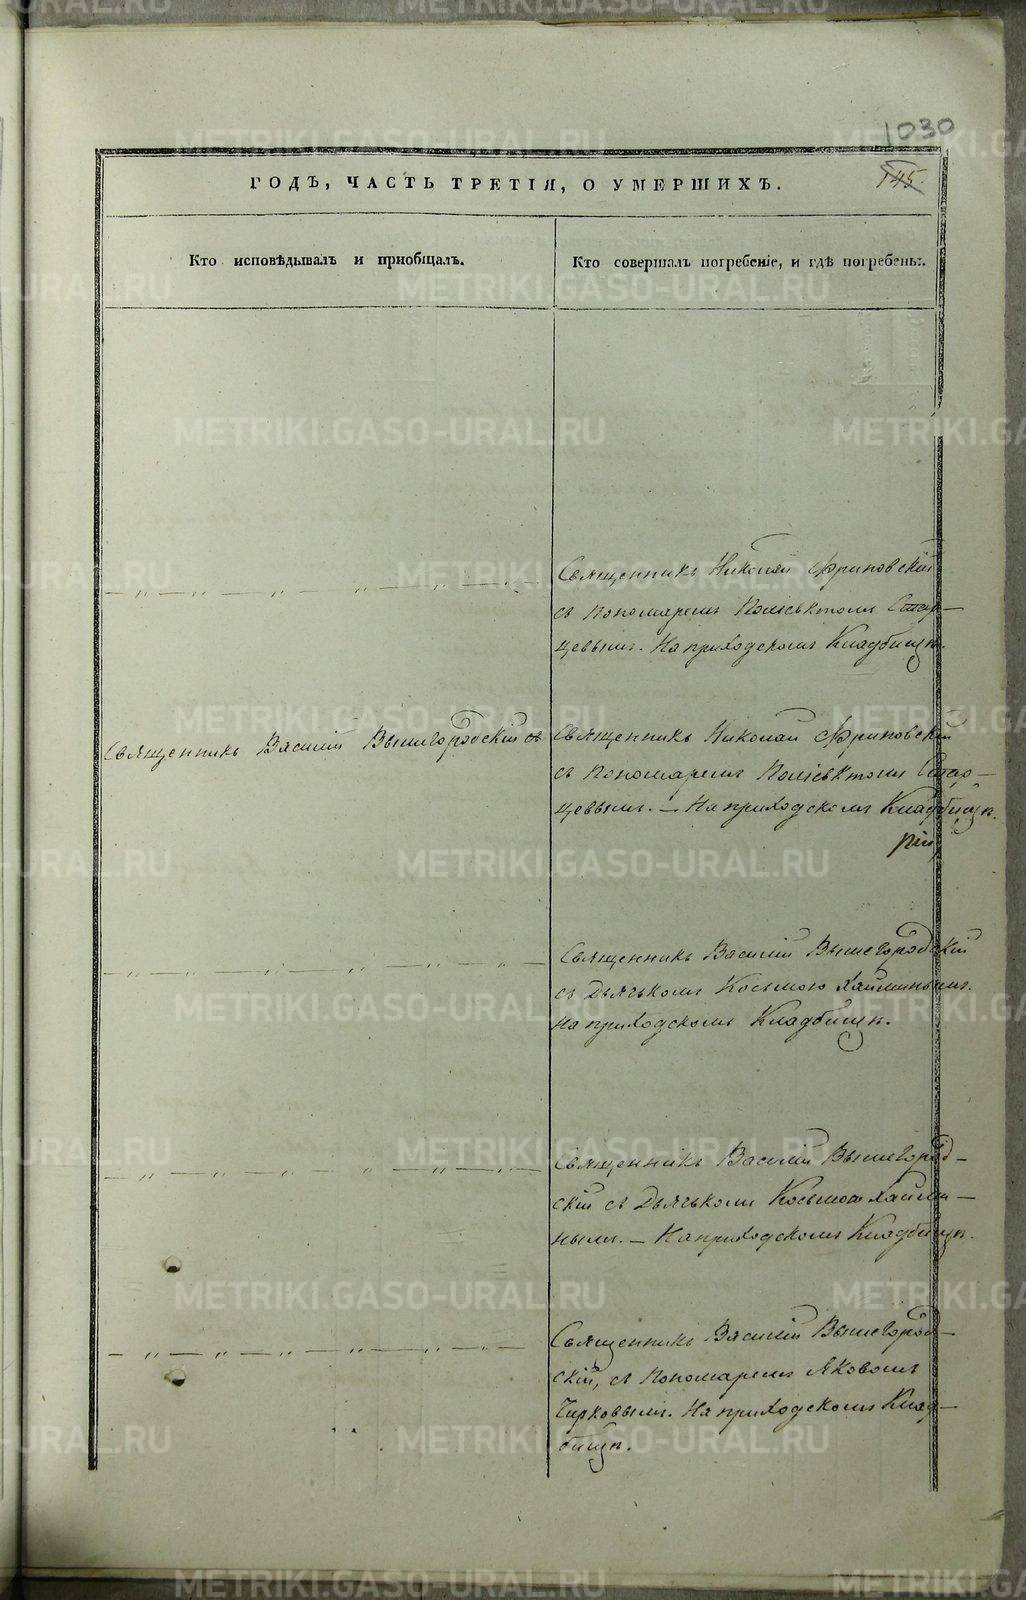 1030
145.
ГОДЪ, ЧАСТЬ ТРЕТІЯ, О УМЕРШИХЪ.
Кто исповѣдывалъ и пріобщалъ.
Кто совершалъ погребеніе, и гдѣ погребены.
Священникъ Николай Фриновскій
съ Пономаремъ Поліевктомъ Стар-
цевымъ. На приходскомъ Кладбищѣ.
Священникъ Василій Вышегородскій
Священникъ Николай Фриновскій
съ Пономаремъ Поліевктомъ Стар-
цевымъ. – На приходскомъ Кладбищѣ.
Священникъ Василій Вышегородскій
съ Дьячькомъ Косьмою
На приходскомъ Кладбищѣ.
Священникъ Василій Вышегород-
скій съ Дьячькомъ Косьмою
нымъ. – На приходскомъ Кладбищѣ.
Священникъ Василій Вышегород-
скій, съ Пономаремъ Яковомъ
Чирковымъ. На приходскомъ Клад-
бищѣ.
METRIKI.GASO-URAL.RU